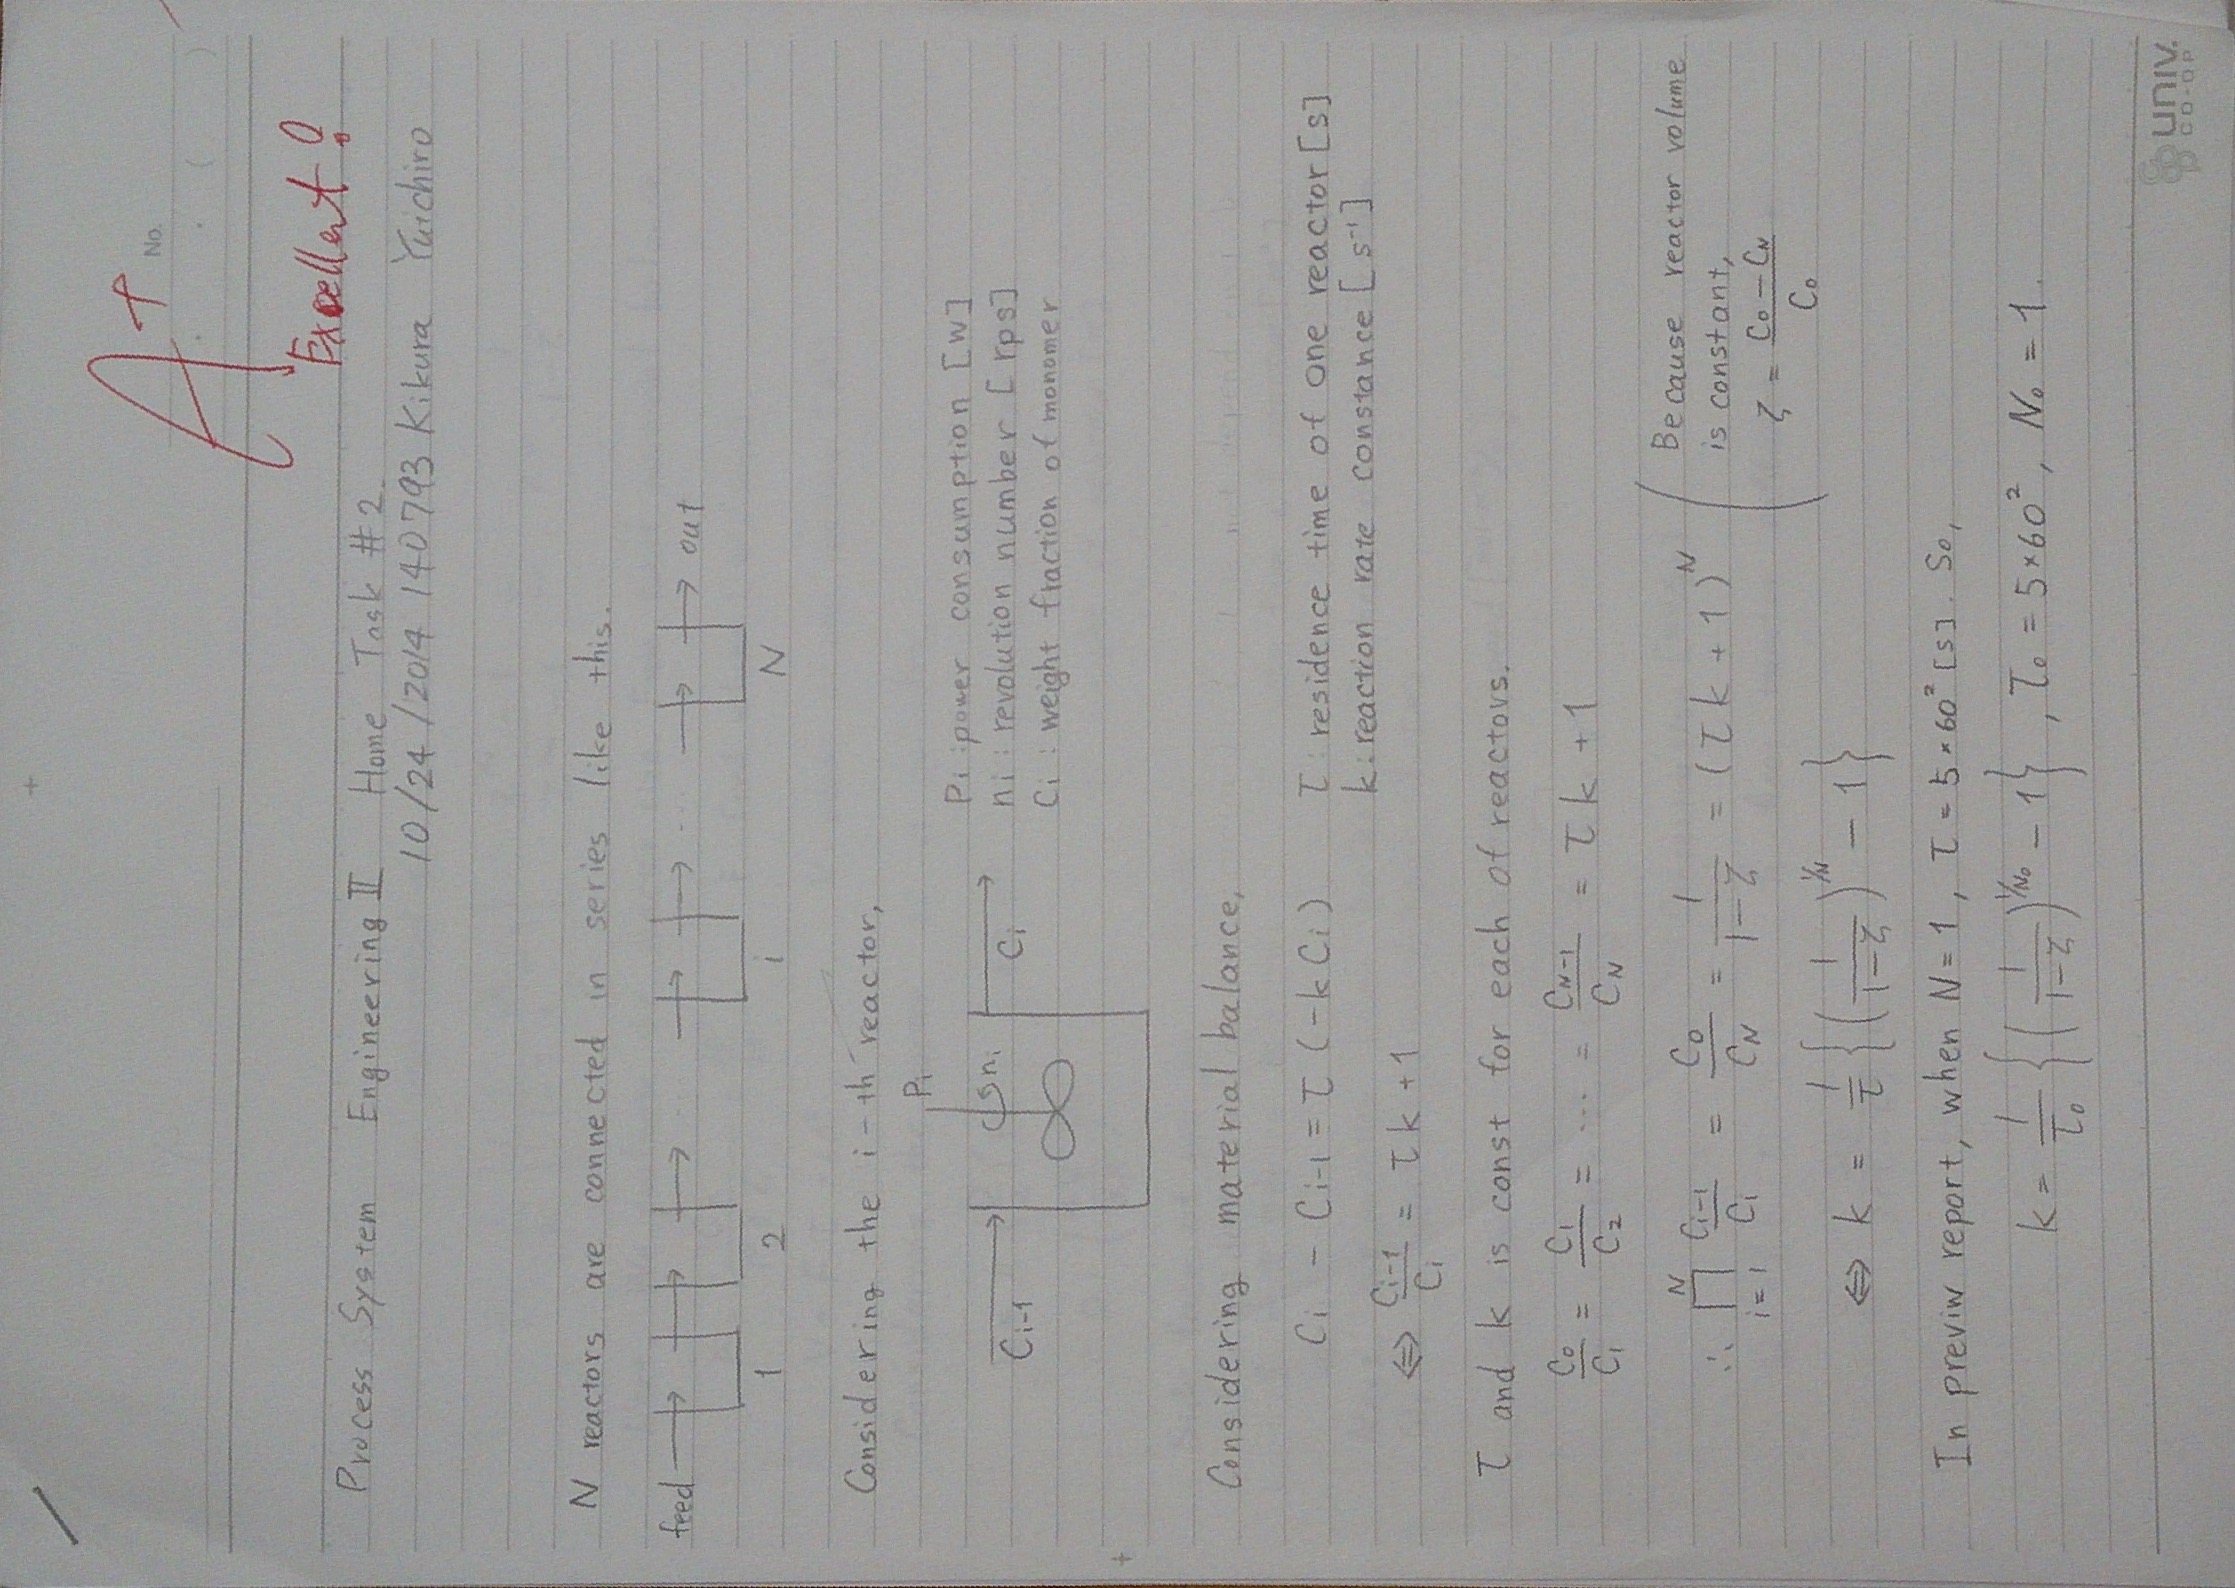 No.
A+
Excellent!
Process System Engineering II Home Task #2
10/24/2014 1407793 Kikura Yuichiro
N reactors are connected in series like this.
feed → → → → ... → → ... → → out
1 2 i N
Considering the i-th reactor,
Pi
ni
Ci-1
Ci
Pi : power consumption [w]
ni : revolution number [rps]
Ci : weight fraction of monomer
Considering material balance,
Ci - Ci-1 = τ(-kCi)
τ : residence time of one reactor [s]
⇔ Ci-1/Ci = τk+1
k : reaction rate constance [s⁻¹]
τ and k is const for each of reactors.
C0/C1 = C1/C2 = ... = CN-1/CN = τk+1
∴ ∏_{i=1}^{N} Ci-1/Ci = C0/CN = 1/(1-ζ) = (τk+1)^N
(Because reactor volume
is constant,
ζ = (C0-CN)/C0
⇔ k = 1/τ {(1/(1-ζ))^{1/N} - 1}
In previw report, when N=1, τ=5×60² [s]. So,
k = 1/τ0 {(1/(1-ζ))^{1/N0} - 1}, τ0 = 5×60², N0 = 1.
univ.
CO-OP